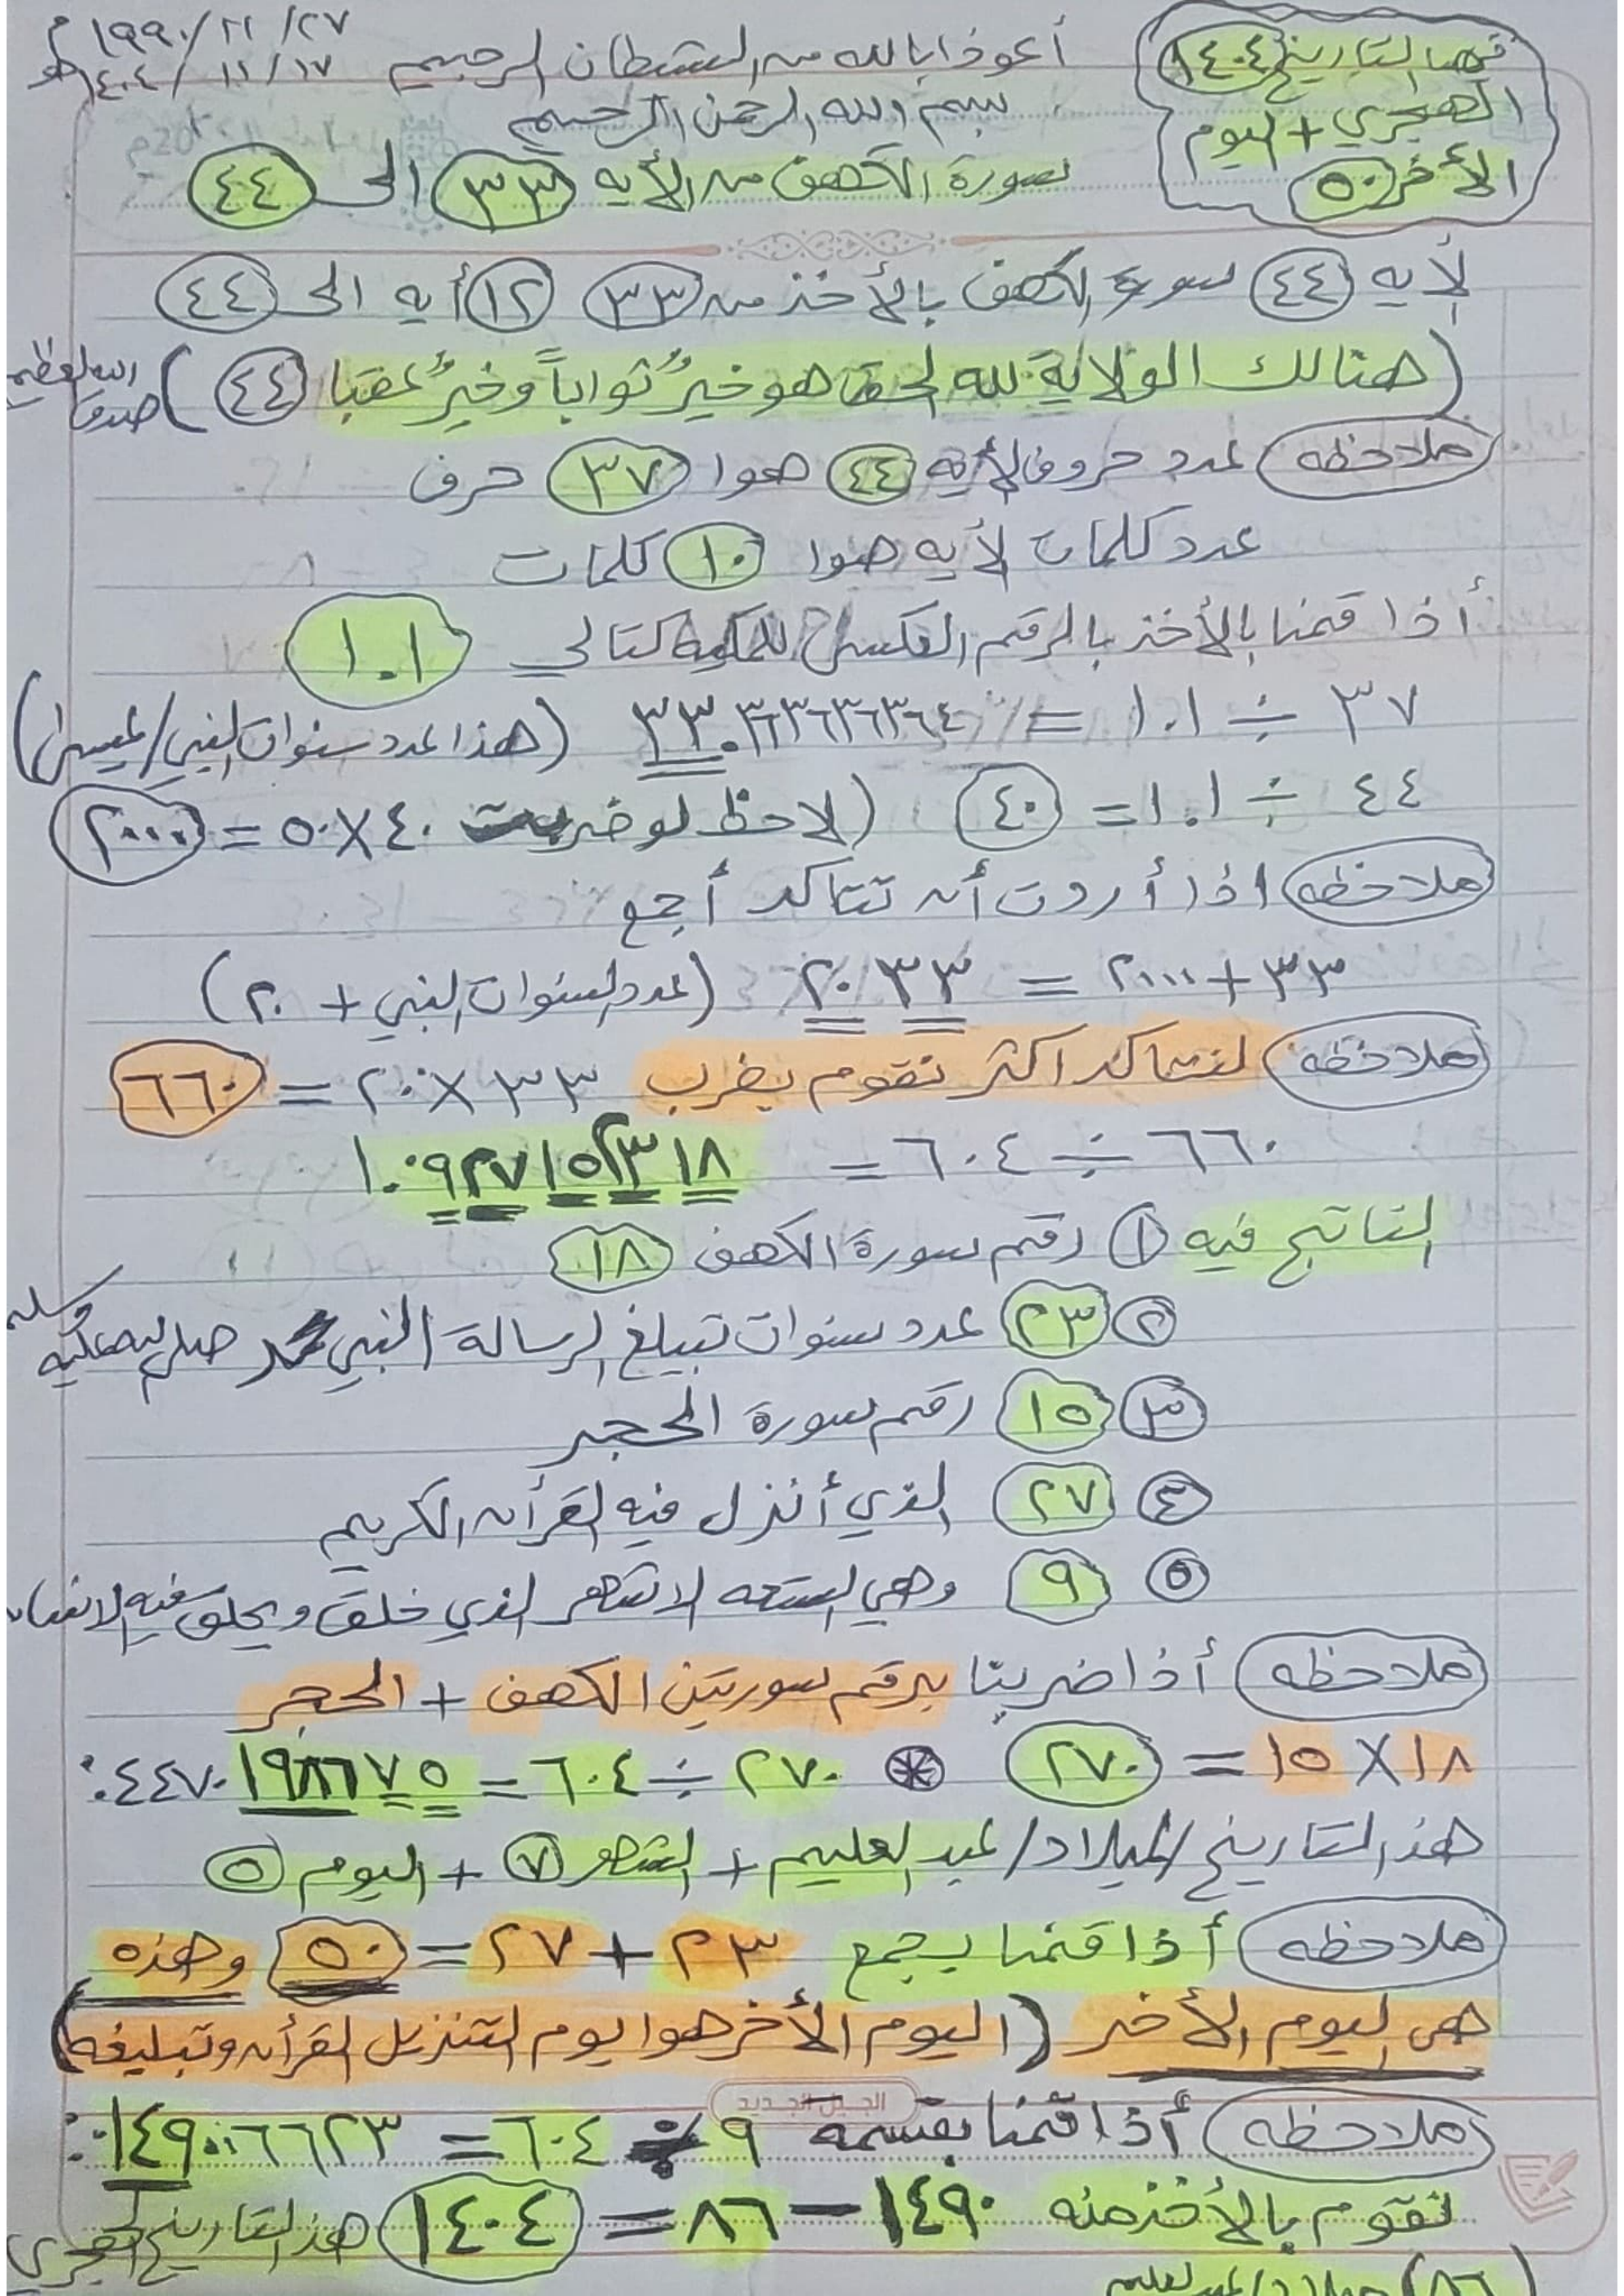 ٢٧/ ١١/ ١٩٩٠م
١٧/ ١١/ ١٤٠٤هـ
أعوذ بالله من الشيطان الرجيم
فيها التاريخ ١٤٠٤
الهجري + اليوم
الأخر ٥٠
بسم الله الرحمن الرحيم
سورة الكهف من الأيه ٣٣ الى ٤٤
لأيه ٤٤ سورة الكهف بالأخذ من ٣٣ ١٢ أيه الى ٤٤
(هنالك الولاية لله الحق هو خيرٌ ثواباً وخيرٌ عقبا ٤٤) صدق الله العظيم
ملاحظه عدد حروف الأيه ٤٤ هوا ٣٧ حرف
عدد كلمات لأيه هوا ١٠ كلمات
أذا قمنا بالأخذ بالرقم العكسي للكلمه كتالي ١.١
٣٧ ÷ ١.١ = ٣٣.٦٣٦٣٦٣٦٤ (هذا عدد سنوات النبي/عيسى)
٤٤ ÷ ١.١ = ٤٠ (لاحظ لو ضربت ٤٠ X ٥٠ = ٢٠٠٠)
ملاحظه اذا أردت أن تتاكد أجمع
٣٣ + ٢٠٠٠ = ٢٠٣٣ (عدد السنوات النبي + ٢٠)
ملاحظه لنتاكد اكثر نقوم بضرب ٣٣ X ٢٠ = ٦٦٠
٦٦٠ ÷ ٦٠٤ = ١.٠٩٢٧١٥٢٣١٨
الناتج فيه ١ رقم سورة الكهف ١٨
٢ ٢٣ عدد سنوات تبيلغ الرسالة النبي محمد صلى الله عليه وسلم
٣ ١٥ رقم سورة الحجر
٤ ٢٧ الذي أنزل فيه القرأن الكريم
٥ ٩ وهي التسعه الاشهر الذي خلق ويخلق فيه الانسان
ملاحظه أذا ضربنا برقم سورتين الكهف + الحجر
١٨ X ١٥ = ٢٧٠ * ٢٧٠ ÷ ٦٠٤ = ٠.٤٤٧٠١٩٨٦٧٥
هذ التاريخ/الميلاد/عبد العليم + الشهر ٧ + اليوم ٥
ملاحظه أذا قمنا بجمع ٢٣ + ٢٧ = ٥٠ وهذه
هي اليوم الأخر (اليوم الأخر هوا يوم التنزيل القرأن وتبليغه)
الجيل الجديد
ملاحظه أذا قمنا بقسمه ٩ ÷ ٦٠٤ = ٠.٠١٤٩٠٠٦٦٢٣
نقوم بالأخذ منه ١٤٩٠ – ٨٦ = ١٤٠٤ هذ التاريخ الهجري
(٨٦) ميلاد/عبد العليم